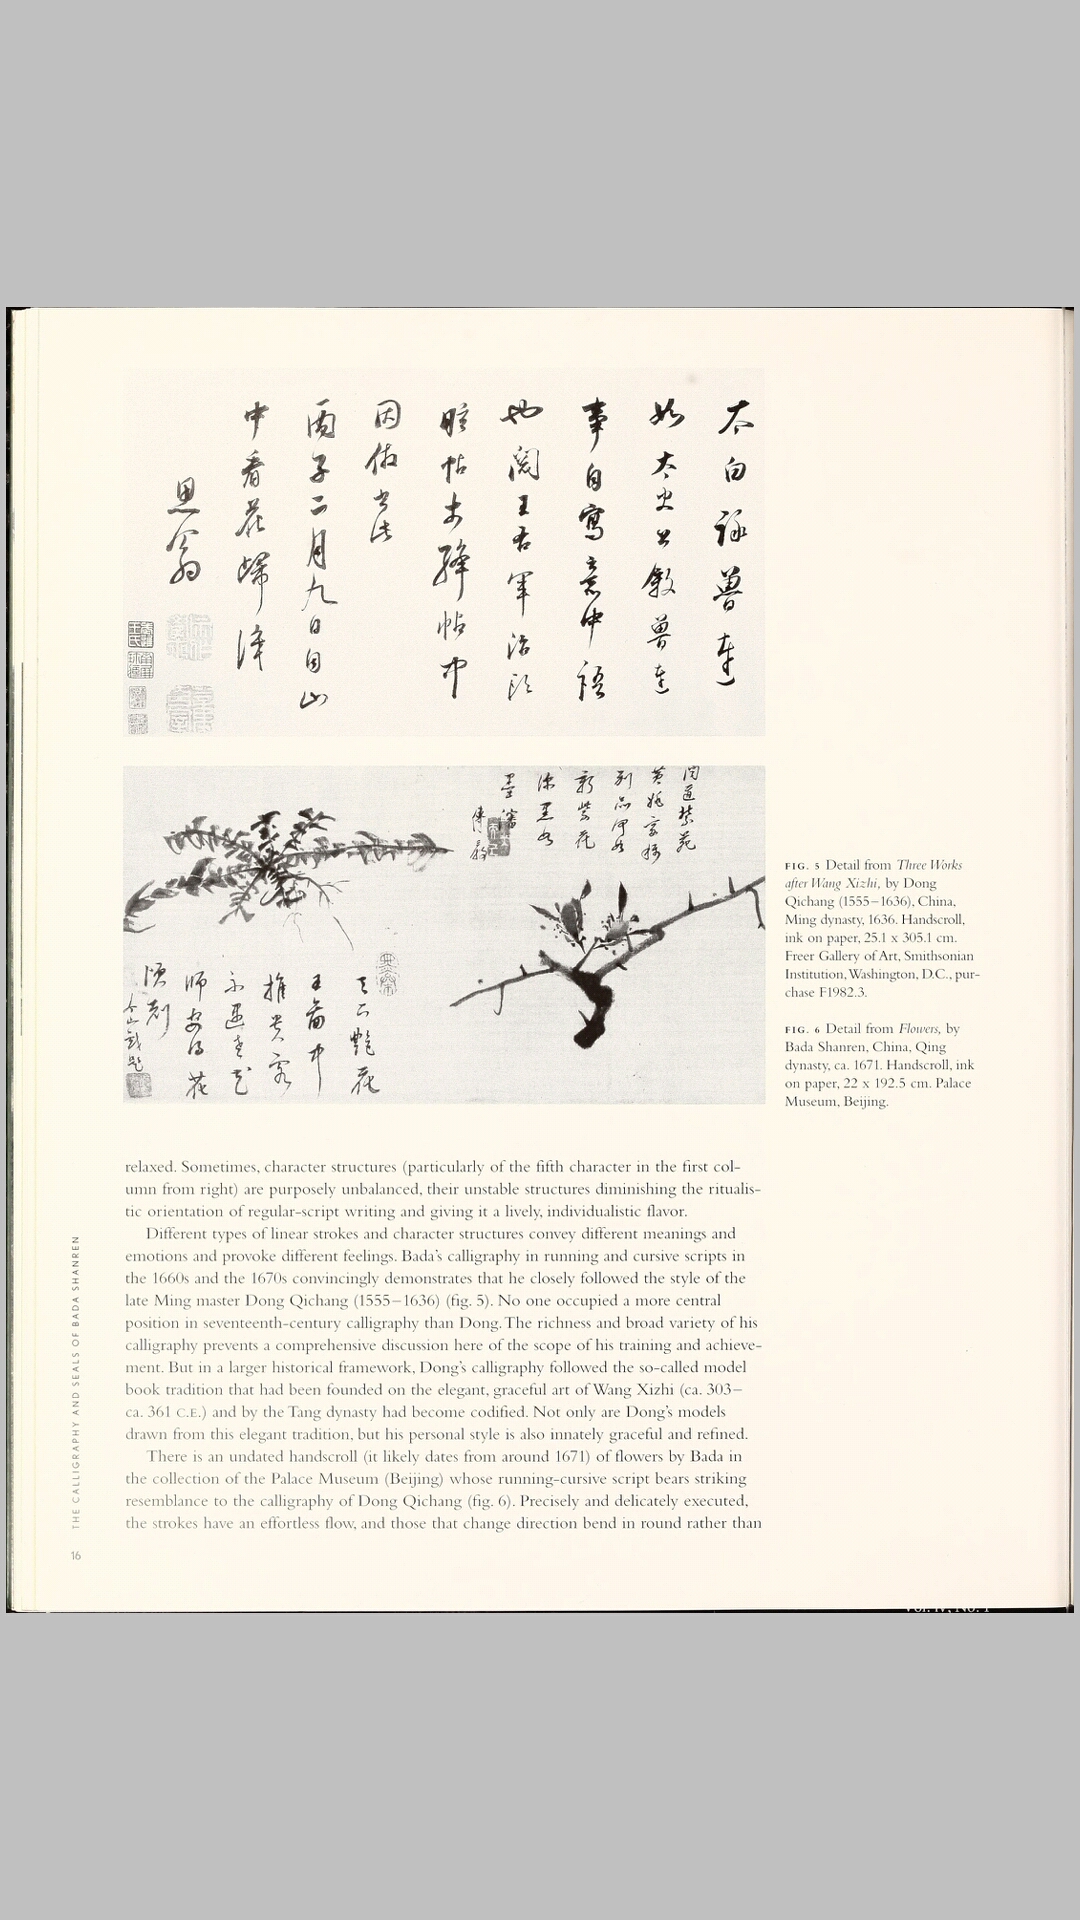 太白詠魯連
如太史公敘魯連
事自寫意中語
也閱王右軍治頭
眩帖
帖中
因倣
酉子二月九日自山
中看花歸
思翁
聞道
墨
天下艶花
王
推
師
花
FIG. 5 Detail from Three Works
after Wang Xizhi, by Dong
Qichang (1555–1636), China,
Ming dynasty, 1636. Handscroll,
ink on paper, 25.1 x 305.1 cm.
Freer Gallery of Art, Smithsonian
Institution, Washington, D.C., pur-
chase F1982.3.
FIG. 6 Detail from Flowers, by
Bada Shanren, China, Qing
dynasty, ca. 1671. Handscroll, ink
on paper, 22 x 192.5 cm. Palace
Museum, Beijing.
relaxed. Sometimes, character structures (particularly of the fifth character in the first col-
umn from right) are purposely unbalanced, their unstable structures diminishing the ritualis-
tic orientation of regular-script writing and giving it a lively, individualistic flavor.
Different types of linear strokes and character structures convey different meanings and
emotions and provoke different feelings. Bada's calligraphy in running and cursive scripts in
the 1660s and the 1670s convincingly demonstrates that he closely followed the style of the
late Ming master Dong Qichang (1555–1636) (fig. 5). No one occupied a more central
position in seventeenth-century calligraphy than Dong. The richness and broad variety of his
calligraphy prevents a comprehensive discussion here of the scope of his training and achieve-
ment. But in a larger historical framework, Dong's calligraphy followed the so-called model
book tradition that had been founded on the elegant, graceful art of Wang Xizhi (ca. 303–
ca. 361 C.E.) and by the Tang dynasty had become codified. Not only are Dong's models
drawn from this elegant tradition, but his personal style is also innately graceful and refined.
There is an undated handscroll (it likely dates from around 1671) of flowers by Bada in
the collection of the Palace Museum (Beijing) whose running-cursive script bears striking
resemblance to the calligraphy of Dong Qichang (fig. 6). Precisely and delicately executed,
the strokes have an effortless flow, and those that change direction bend in round rather than
THE CALLIGRAPHY AND SEALS OF BADA SHANREN
16